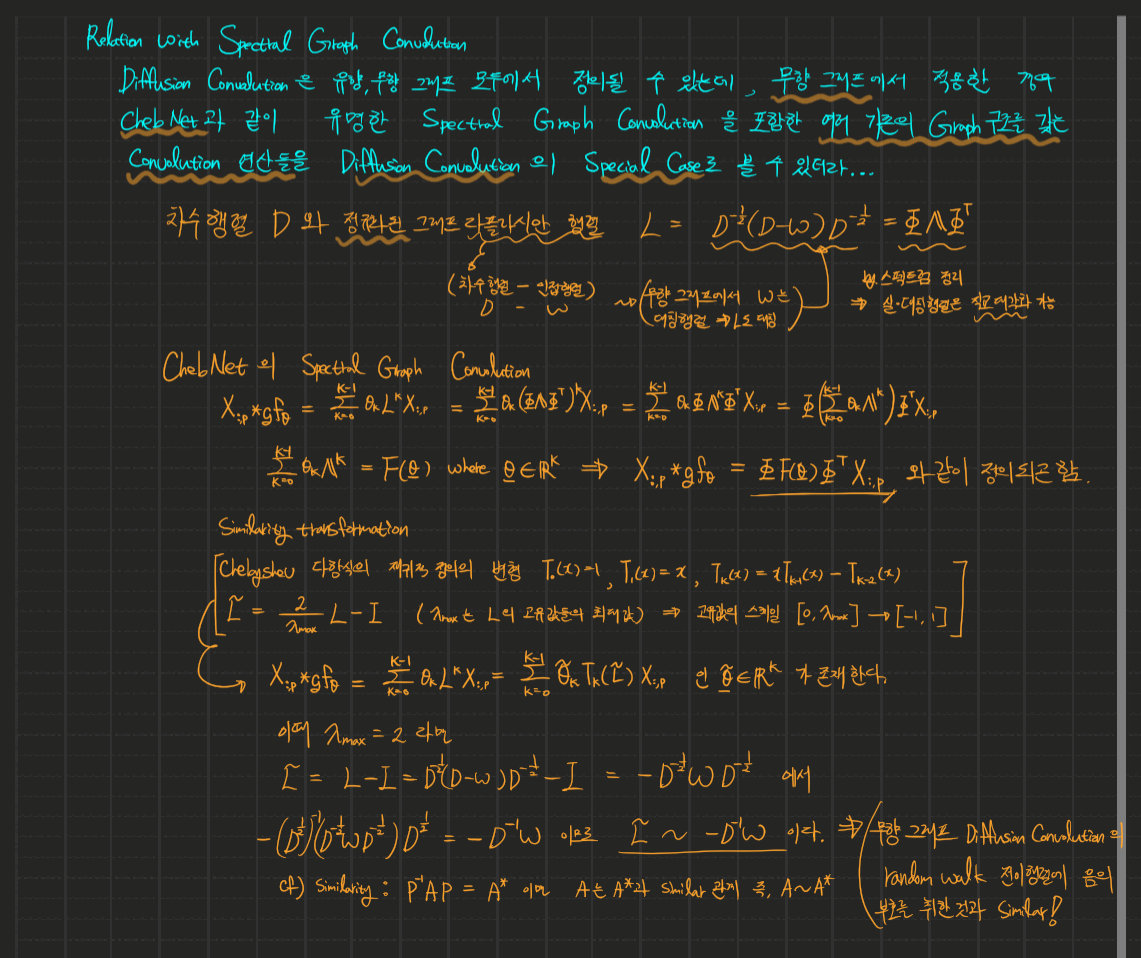 Relation with Spectral Graph Convolution
Diffusion Convolution은 유향,무향 그래프 모두에서 정의될 수 있는데, 무향 그래프에서 적용한 경우
ChebNet과 같이 유명한 Spectral Graph Convolution을 포함한 여러 기존의 Graph 구조를 갖는
Convolution 연산들을 Diffusion Convolution의 Special Case로 볼 수 있더라...
차수행렬 D와 정규화된 그래프 라플라시안 행렬 L = D^{-1/2}(D-W)D^{-1/2} = ΦΛΦ^T
(차수행렬 - 인접행렬)
D - W
~> (무향 그래프에서 W는
대칭행렬 ⇒ L도 대칭)
by. 스펙트럼 정리
⇒ 실·대칭행렬은 직교 대각화 가능
ChebNet의 Spectral Graph Convolution
X_{:,p}*gf_θ = Σ_{k=0}^{K-1} θ_k L^k X_{:,p} = Σ_{k=0}^{K-1} θ_k (ΦΛΦ^T)^k X_{:,p} = Σ_{k=0}^{K-1} θ_k ΦΛ^kΦ^T X_{:,p} = Φ(Σ_{k=0}^{K-1} θ_k Λ^k)Φ^T X_{:,p}
Σ_{k=0}^{K-1} θ_k Λ^k = F(θ) where θ∈ℝ^K ⇒ X_{:,p}*gf_θ = ΦF(θ)Φ^T X_{:,p} 와 같이 정의되곤 함.
Similarity transformation
[Chebyshev 다항식의 재귀적 정의의 변형 T_0(x)=1, T_1(x)=x, T_k(x)=xT_{k-1}(x) - T_{k-2}(x)
L̃ = 2/λ_max L - I (λ_max는 L의 고유값들의 최대값) ⇒ 고유값의 스케일 [0, λ_max] → [-1, 1]]
X_{:,p}*gf_θ = Σ_{k=0}^{K-1} θ_k L^k X_{:,p} = Σ_{k=0}^{K-1} θ̃_k T_k(L̃) X_{:,p} 인 θ̃∈ℝ^K 가 존재한다.
이때 λ_max = 2 라면
L̃ = L-I = D^{-1/2}(D-W)D^{-1/2} - I = -D^{-1/2}WD^{-1/2} 에서
-(D^{1/2})^{-1}(D^{-1/2}WD^{-1/2})D^{1/2} = -D^{-1}W 이므로 L̃ ~ -D^{-1}W 이다.
⇒ (무향 그래프 Diffusion Convolution의
random walk 전이행렬에 음의
부호를 취한것과 Similar!)
cf) Similarity : P^{-1}AP = A* 이면 A는 A*과 similar 관계 즉, A~A*